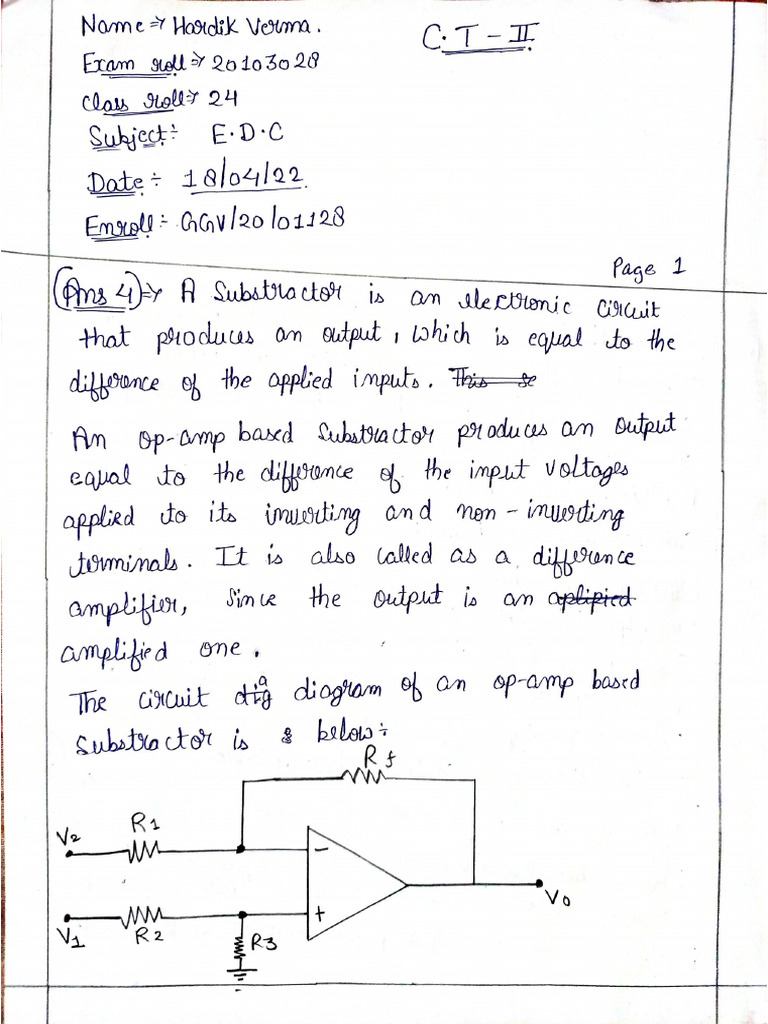 Name⇒ Hardik Verma.
C.T-II
Exam roll⇒ 20103028
Class roll⇒ 24
Subject÷ E.D.C
Date÷ 18/04/22
Enroll÷ GGV/20/01128
Page 1
(Ans 4)⇒ A Substractor is an electronic circuit
that produces an output, which is equal to the
difference of the applied inputs. This se
An op-amp based Substractor produces an output
equal to the difference of the input voltages
applied to its inverting and non-inverting
terminals. It is also called as a difference
amplifier, Since the output is an aplipied
amplified one.
The circuit diag diagram of an op-amp based
Substractor is below÷
Rf
R1
V2
-
+
V0
V1
R2
R3